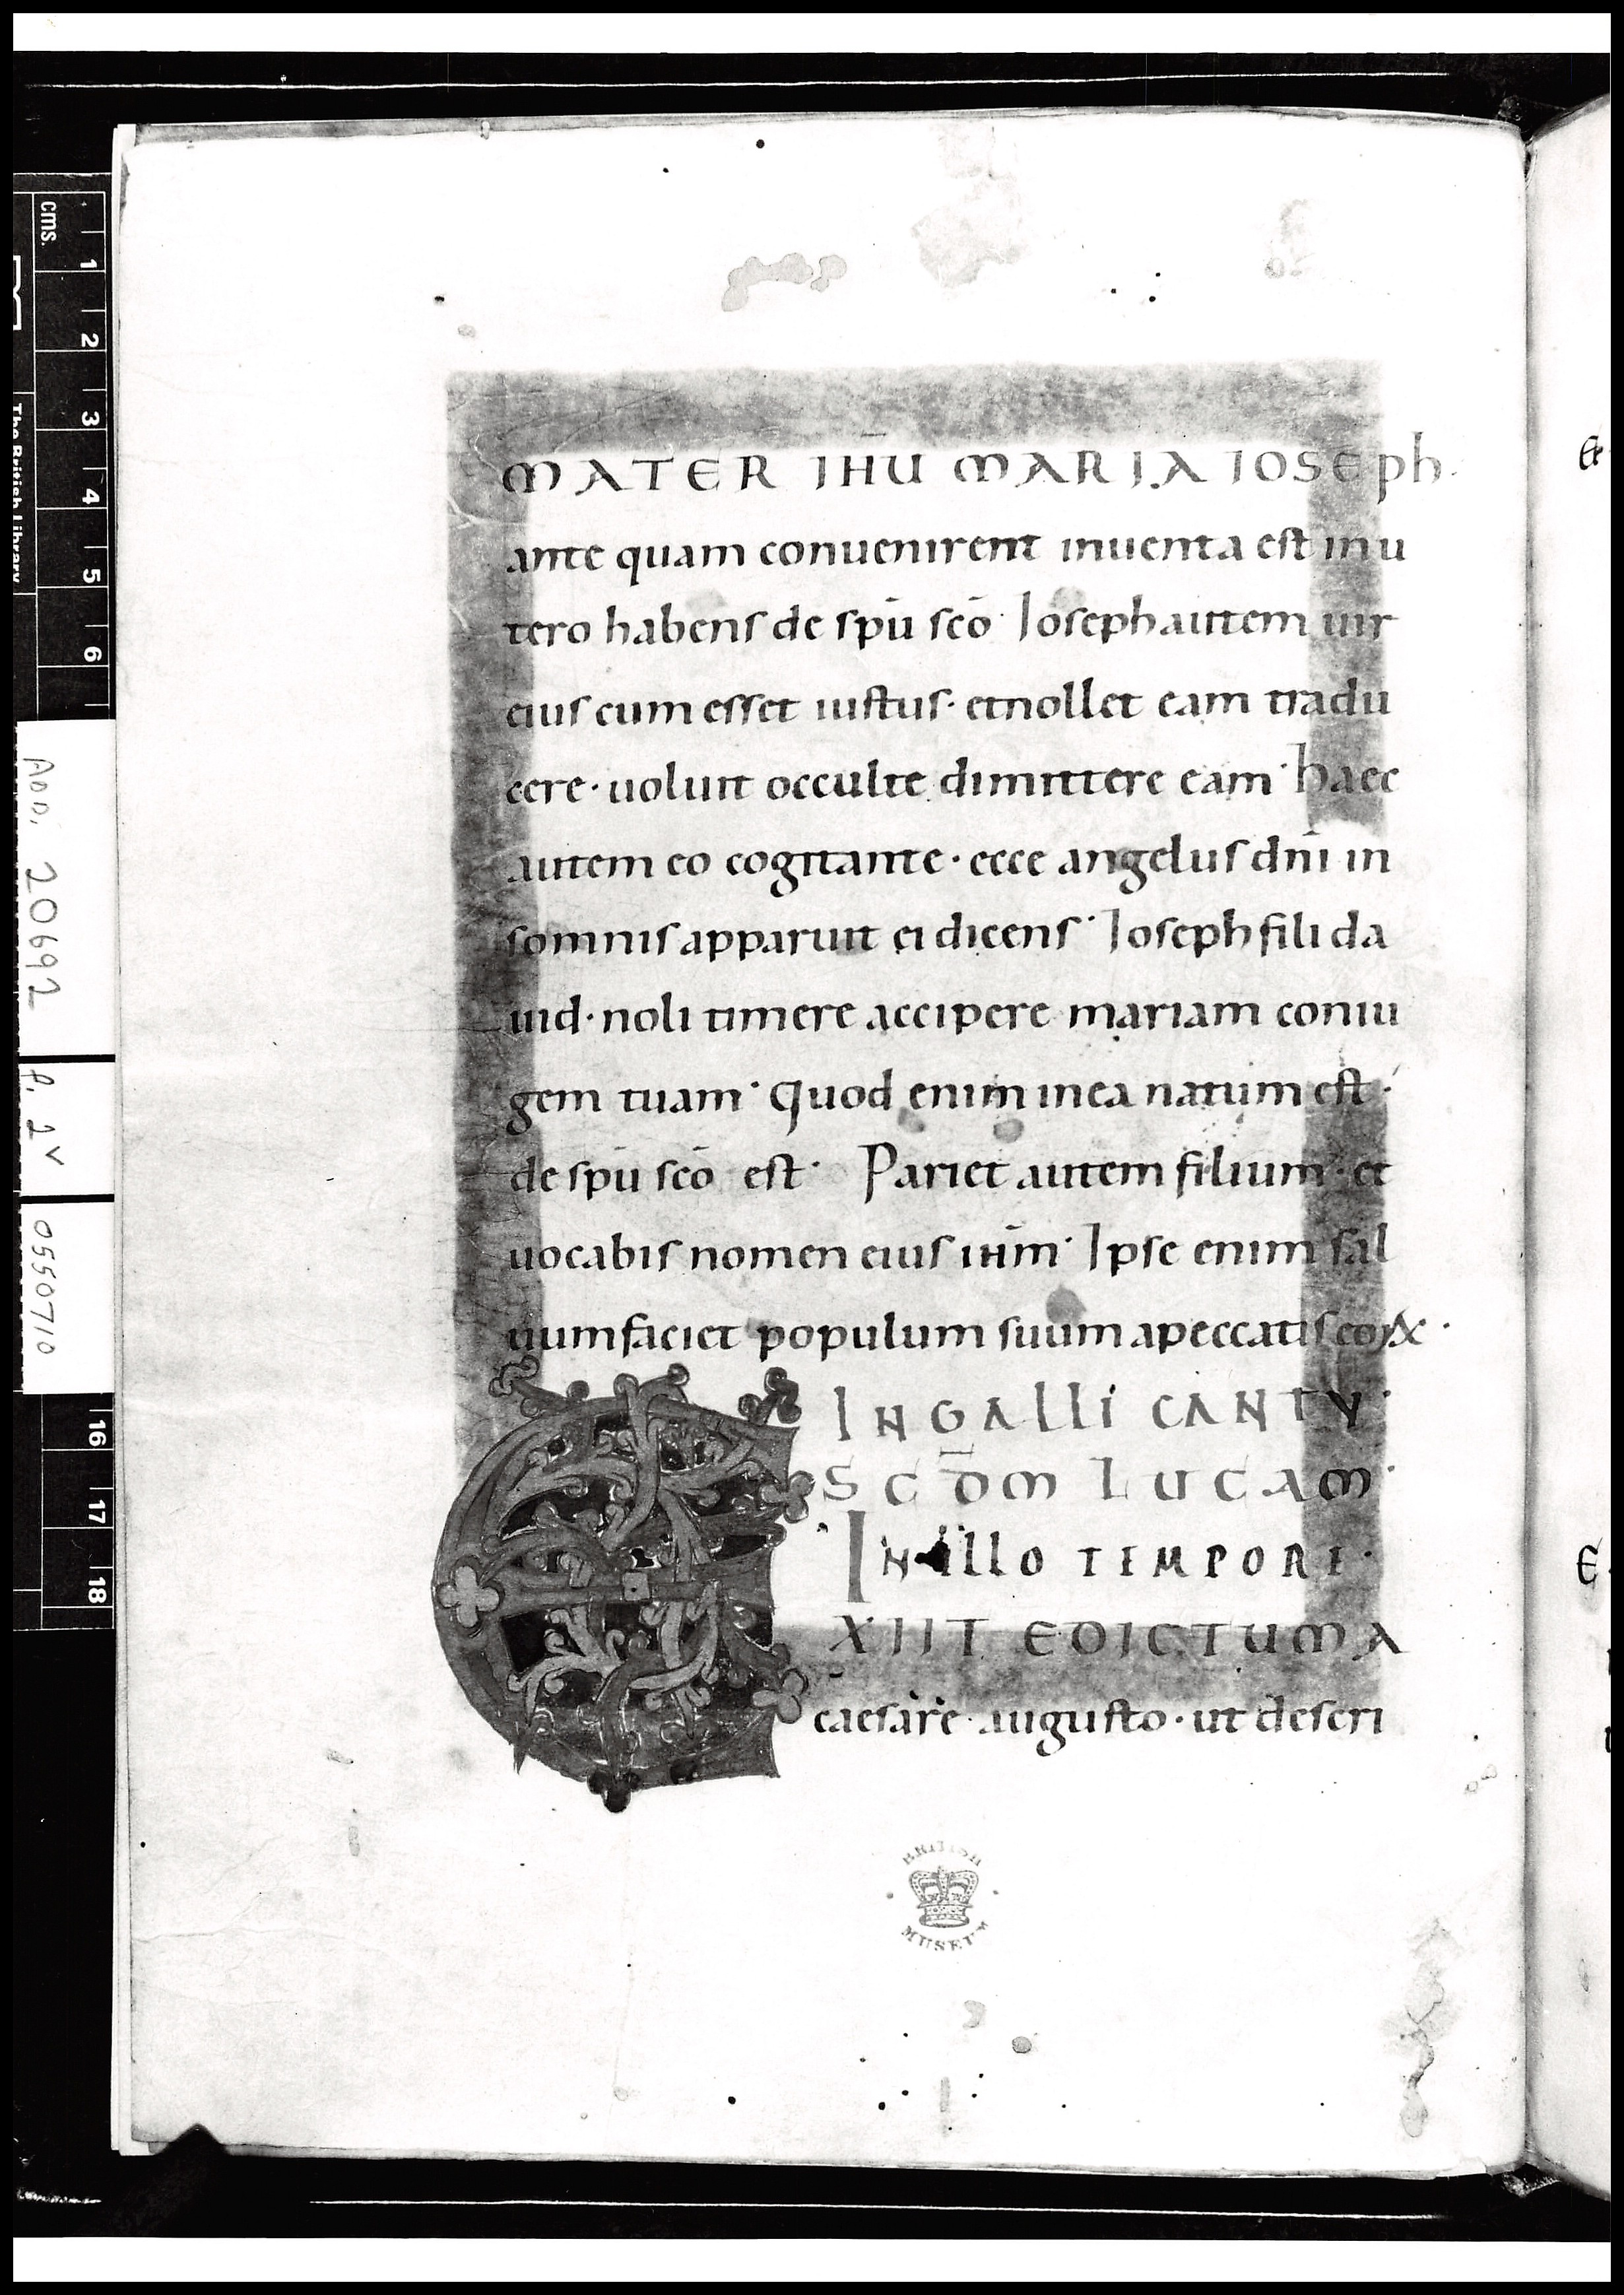 MATER IHU̅ MARIA IOSEPh·
ante quam conuenirent inuenta est in u
tero habens de spu̅ sc̅o· Ioseph autem uir
eius cum esset iustus· et nollet eam tradu
cere· uoluit occulte dimittere eam· haec
autem eo cogitante· ecce angelus dn̅i in
somnis apparuit ei dicens· Ioseph fili da
uid· noli timere accipere mariam coniu
gem tuam· Quod enim in ea natum est·
de spu̅ sc̅o est· Pariet autem filium· et
uocabis nomen eius ihm̅· Ipse enim sal
uum faciet populum suum a peccatis eorꝝ·
IN GALLI CANTV·
SCD̅M LUCAM·
IN ILLO TEMPORE·
E
XIIT EDICTUM A
caesare· augusto· ut descri
BRITISH
MUSEUM
cms.
1
2
3
4
5
6
16
17
18
The British Library
ADD. 20692
0550710
&
E